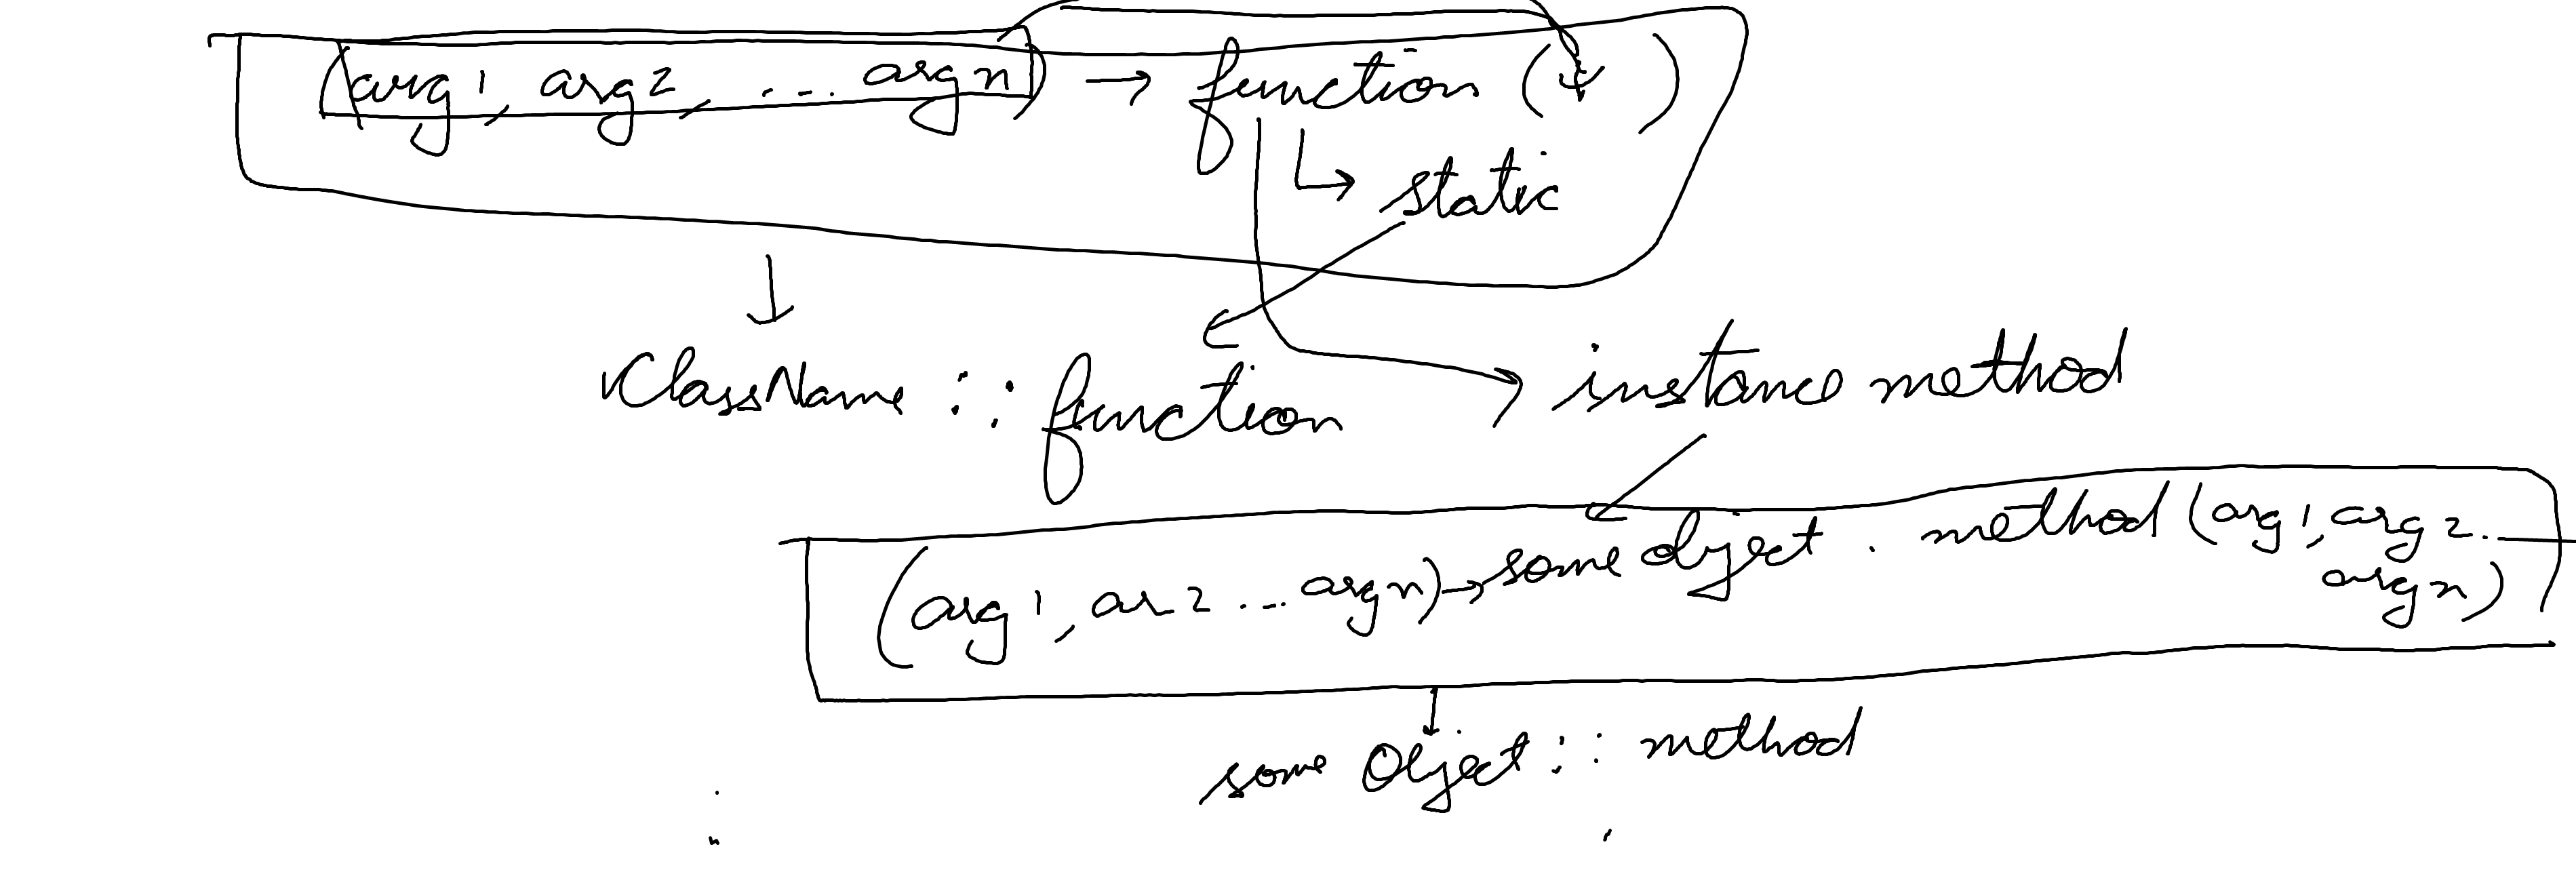 (arg1, arg2, ... argn) → function ( )
↳ static
ClassName :: function
instance method
(arg1, ar2 ... argn) → some object . method (arg1, arg2..
argn)
some Object :: method